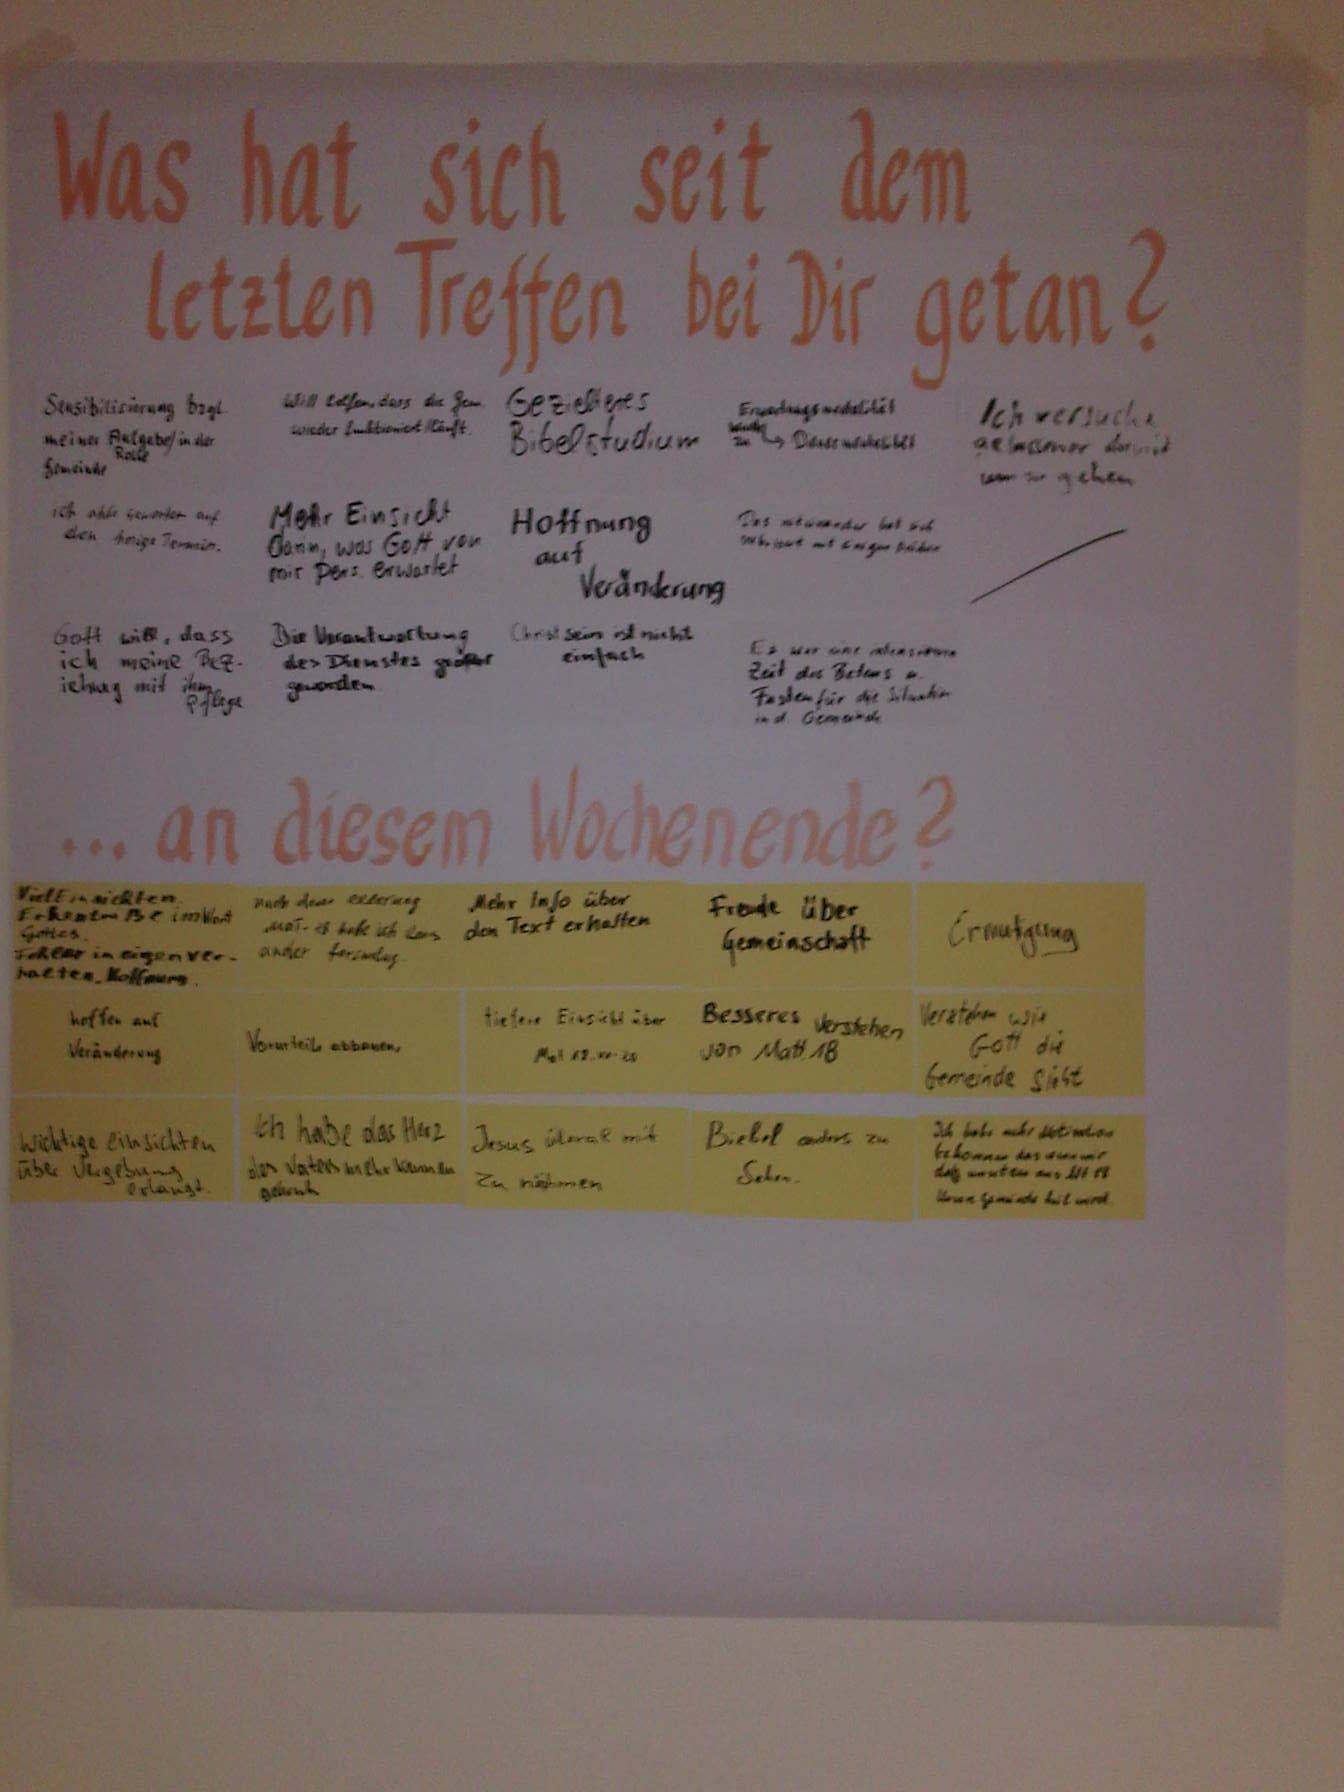 Was hat sich seit dem
letzten Treffen bei Dir getan?
Sensibilisierung bzgl.
meiner Aufgabe/in der
Rolle
Gemeinde
Will helfen, dass die Gem.
wieder funktioniert/läuft.
Gezielteres
Bibelstudium
Erwartungsmentalität
zu → Dienermentalität
Ich versuche
gelassener damit
um zu gehen
ich habe gewartet auf
den heutige Termin.
Mehr Einsicht
darin, was Gott von
mir pers. erwartet
Hoffnung
auf
Veränderung
Das miteinander hat sich
verbessert mit einigen Brüdern
Gott will, dass
ich meine Bez-
iehung mit ihm
pflege
Die Verantwortung
des Dienstes größer
geworden
Christ sein ist nicht
einfach
Es war eine intensivere
Zeit des Betens u.
Fasten für die Situation
in d. Gemeinde
... an diesem Wochenende?
Viel Einsichten
im Wort
Gottes.
Fehler in eigen ver-
halten. Hoffnung.
nach dem
Mat. 18 habe ich das
ander
Mehr Info über
den Text erhalten
Freude über
Gemeinschaft
Ermutigung
hoffen auf
Veränderung
Vorurteile abbauen.
tiefere Einsicht über
Mat 18.
Besseres Verstehen
von Matt. 18
Verstehen wie
Gott die
Gemeinde sieht
Wichtige einsichten
über Vergebung
erlangt.
Ich habe das Herz
des Vaters mehr kennen
gelernt
Jesus überall mit
zu nähmen
Biebel anders zu
Sehen.
Ich habe mehr Motivation
bekommen das wenn wir
das
Unsere Gemeinde heil wird.